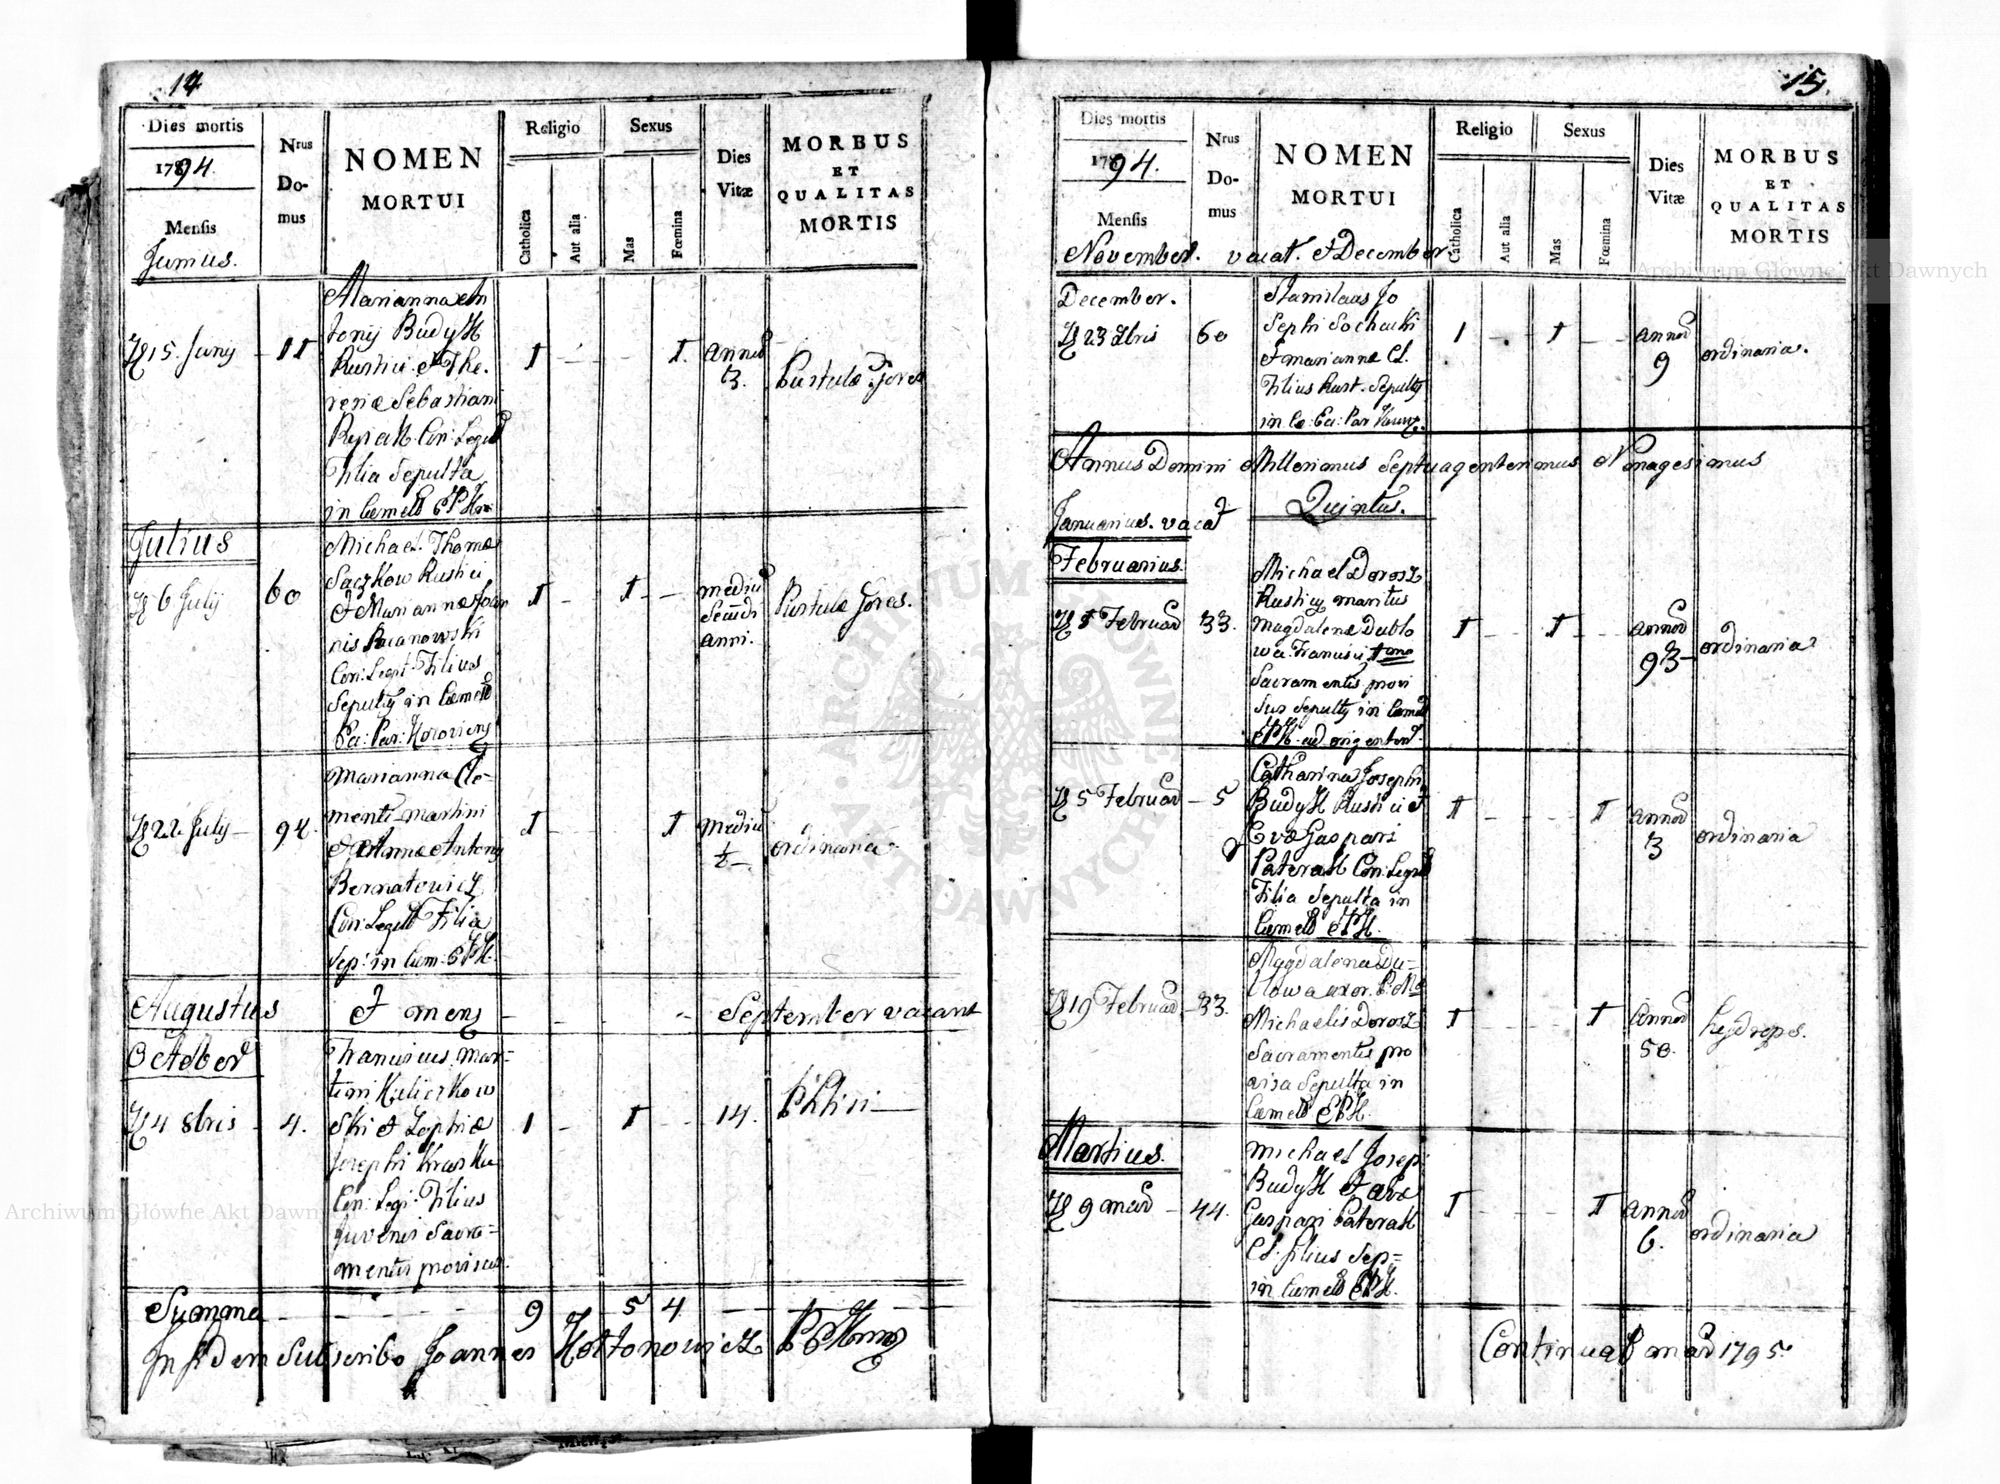 14
Dies mortis
1794.
Mensis
Junius.
Nrus
Do-
mus
NOMEN
MORTUI
Religio
Catholica
Aut alia
Sexus
Mas
Fœmina
Dies
Vitæ
MORBUS
ET
QUALITAS
MORTIS
15. Junij
11
Marianna An
tonij Budyk
Rustici et The.
resiæ Sebastiani
Con: Legit
Filia Sepulta
in Cæmet
1
1.
Annor
3.
Pustulæ
Julius
6 Julij
60
Michael Thomæ
Saczkow Rustici
et Mariannæ Joan
nis Pacanowski
Con: Legit: Filius
Sepultus in Cæmet
Ec: Par:
1
1
medii
Secundi
anni.
Pustulæ
22 Julij
94.
Marianna Cle-
mentis Martini
et Annæ Antonij
Bernatowicz
Con: Legit Filia
Sep: in Cæm: EPH
1
1
Medii
½
ordinaria
Augustus
et mens
September vacant
October
4 8bris
4.
Franciscus Mar-
tini Kuliczkow
Ski et Zophiæ
Josephi
Con: Legi: Filius
juvenis Sacra-
mentis provisus
1
1
14.
Summa
9
5
4
Subscribo Joannes
15.
Dies mortis
1794.
Mensis
November. vacat. et December
Nrus
Do-
mus
NOMEN
MORTUI
Religio
Catholica
Aut alia
Sexus
Mas
Fœmina
Dies
Vitæ
MORBUS
ET
QUALITAS
MORTIS
December.
23 Xbris
60
Stanislaus Jo
Sephi Sochacki
et Mariannæ CL.
Filius Rust. Sepultus
in Cæ: Ec: Par
1
1
Annor
9
ordinaria.
Annus Domini Millesimus Septuagentesimus Nonagesimus
Quintus.
Januarius. vacat
Februarius.
1 Februar
33.
Michael Dorosz
Rusticus maritus
Magdalenæ Dublo
wa Francisci
Sacramentis provi
sus Sepultus in Cæmet
EPH
1
1
Annor
93
ordinaria
5 Februar
5
Catharina Josephi
Budyk Rustici et
Evæ Gaspari
Paterak Con: Legit
Filia Sepulta in
Cæmet EPH.
1
1
Annor
3
ordinaria
19 Februar
33.
Magdalena Du-
blowa uxor
Michaelis Dorosz
Sacramentis pro
visa Sepulta in
Cæmet EPH.
1
1
Annor
50.
hydrops.
Martius.
9 Mar
44.
Michael Josep
Budyk et Evæ
Gaspari Paterak
CL. filius Sep-
in Cæmet EPH.
1
1
Annor
6.
ordinaria
1795.
Archiwum Główne Akt Dawnych
Archiwum Główne Akt Dawnych
ARCHIWUM GŁÓWNE AKT DAWNYCH